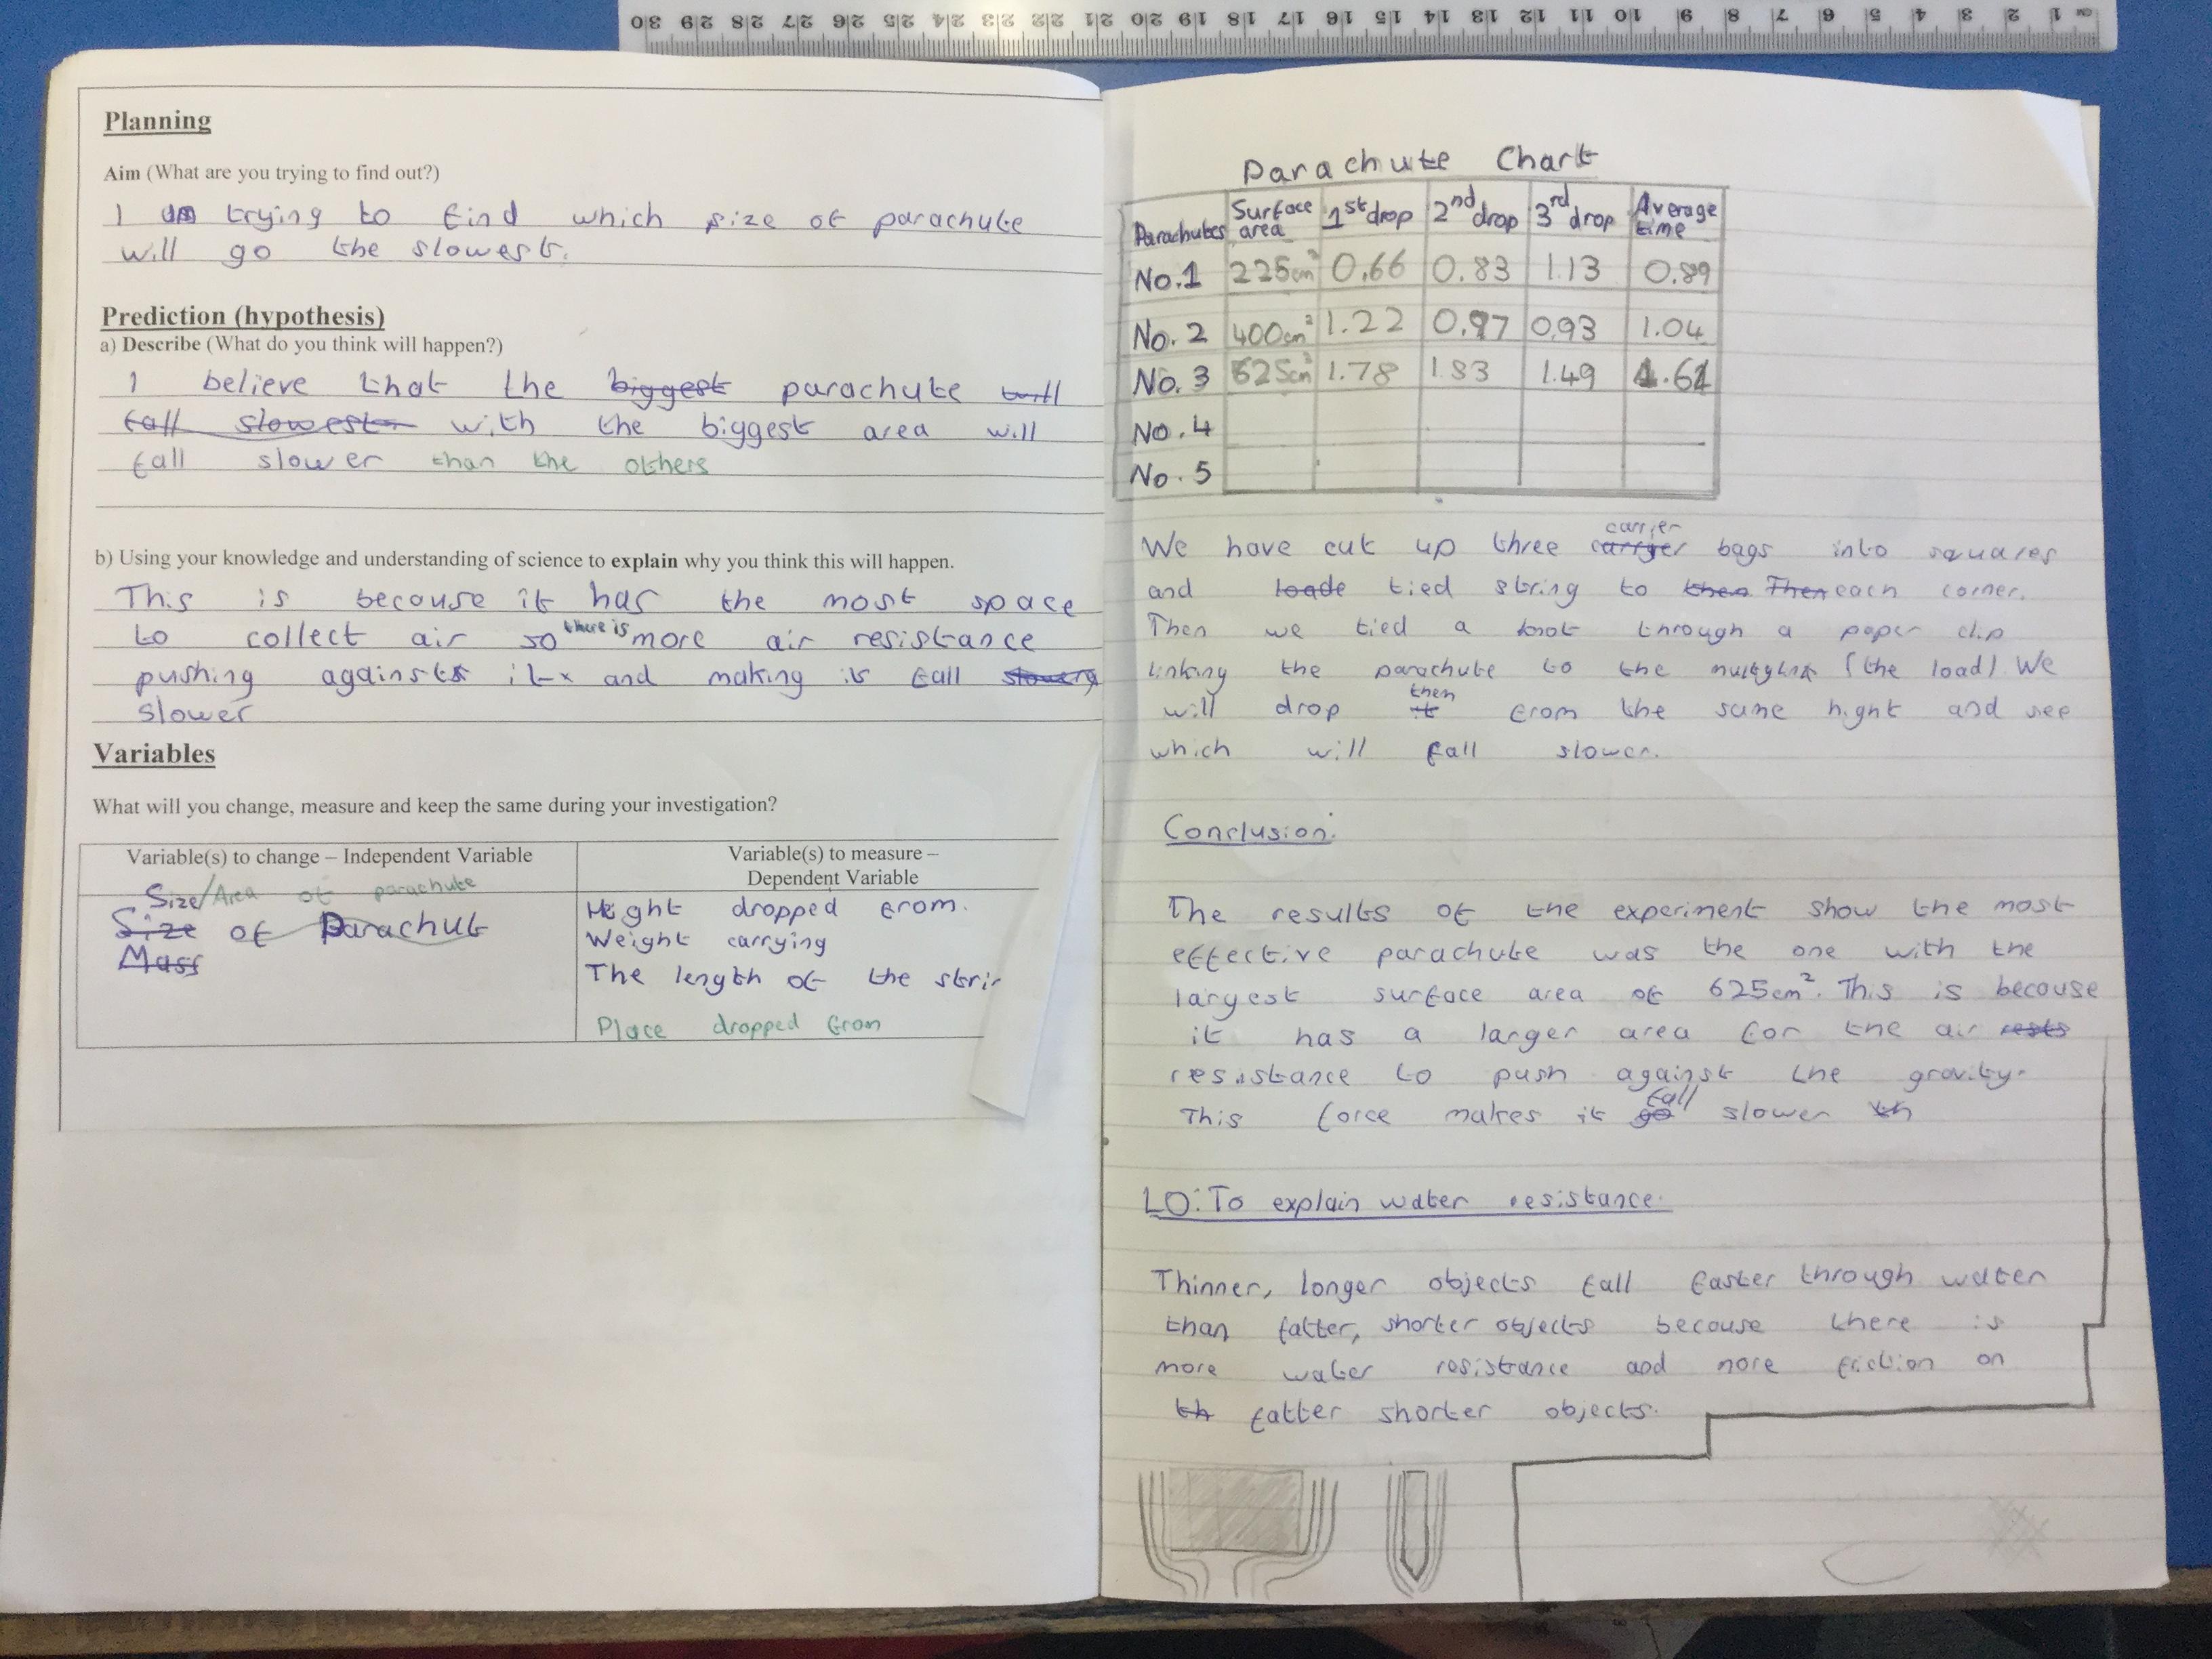 30 29 28 27 26 25 24 23 22 21 20 19 18 17 16 15 14 13 12 11 10 9 8 7 6 5 4 3 2 1 cm
Planning
Aim (What are you trying to find out?)
I am trying to find which size of parachute
will go the slowest.
Prediction (hypothesis)
a) Describe (What do you think will happen?)
I believe that the biggest parachute will
fall slowest with the biggest area will
fall slower than the others
b) Using your knowledge and understanding of science to explain why you think this will happen.
This is because it has the most space
to collect air so there is more air resistance
pushing against it and making it fall
slower
Variables
What will you change, measure and keep the same during your investigation?
Variable(s) to change – Independent Variable
Size/Area of parachute
Size of Parachut
Mass
Variable(s) to measure –
Dependent Variable
Hight dropped from.
Weight carrying
The length of the strin
Place dropped from
Parachute Chart
Parachutes Surface area 1st drop 2nd drop 3rd drop Average time
No.1 225cm² 0.66 0.83 1.13 0.89
No.2 400cm² 1.22 0.97 0.93 1.04
No.3 625cm² 1.78 1.53 1.49 1.61
No.4
No.5
We have cut up three carrier bags into squares
and loade tied string to then Then each corner.
Then we tied a knot through a paper clip
linking the parachute to the (the load). We
will drop it then from the same hight and see
which will fall slower.
Conclusion:
The results of the experiment show the most
effective parachute was the one with the
largest surface area of 625cm². This is because
it has a larger area for the air rests
resistance to push against the gravity.
This force makes it go fall slower th
LO: To explain water resistance.
Thinner, longer objects fall faster through water
than fatter, shorter objects because there is
more water resistance and more friction on
th fatter shorter objects.